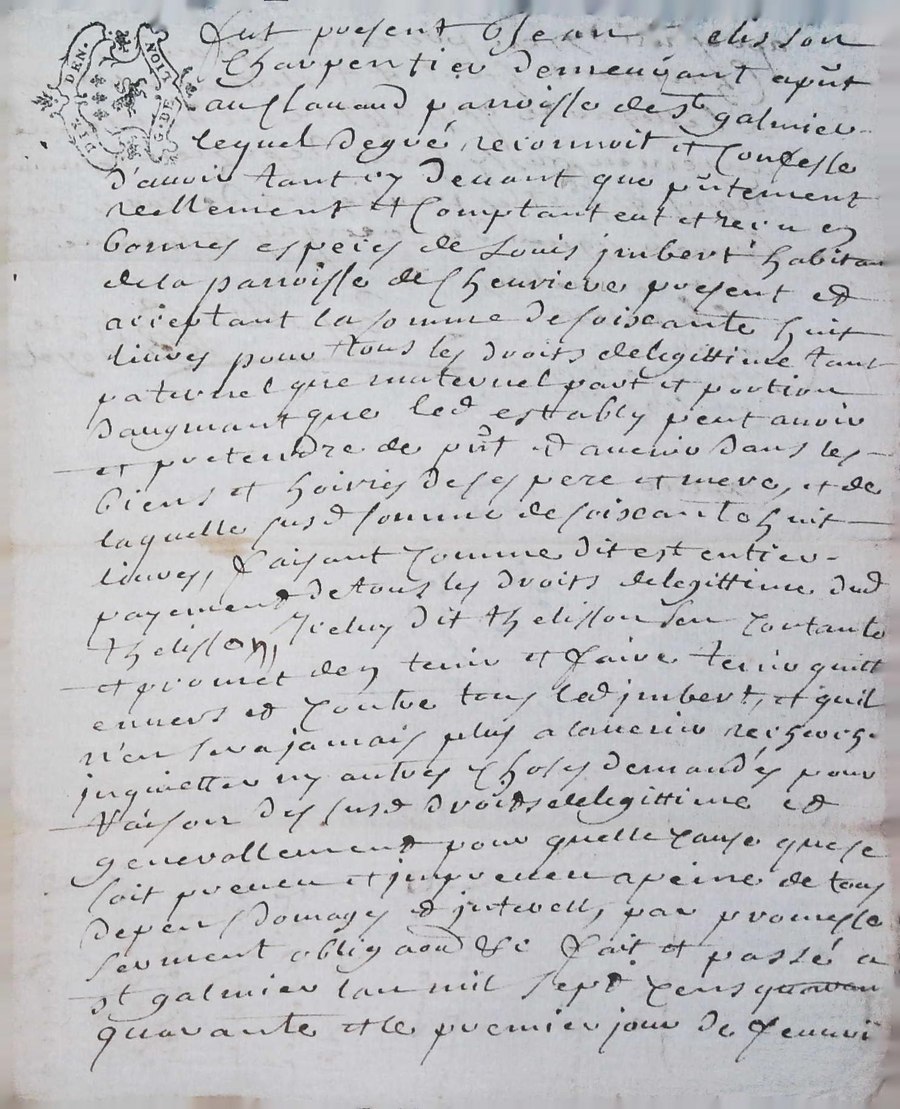 DIX. DEN. NOIT. G. DE
fut present Jean - elisson
Charpentier demeurant apñt
au Clauaud parroisse de st galmier -
lequel de gré, reconnoit et Confesse
d'auoir tant cy deuant que pñtement
reellement et Comptant eut et reçu en
bonnes especes de Louis jmbert habitan
de la parroisse de Cheuriere present et
acceptant la somme de soiscante huit
liures pour tous les droits delegittime tant
paternel que maternel part et portion
daugmant que led estably peut auoir
et pretendre de pñt et auenir dans les -
biens et hoiries de ses pere et mere, et de
laquelle susd somme de soiscante huit -
liures, faisant Comme dit est entier -
payement de tous les droits delegittime dud
thelisson, Jceluy dit thelisson sen Contante
et promet den tenir et faire tenir quitt
enuers et Contre tous led jmbert, et quil
n'en sera jamais plus alauenir recherch.
jnquietter ny autres Choses demandés pour
raison des susd droits delegittime et
generallement pour quelle Cause que se
soit preueu et jmpreueu apeine de tous
depens domages et jnterest, par promesse
serment obligaõn &c fait et passé a
st galmier lan mil sept Cens quaran
quarante et le premier jour de feurie